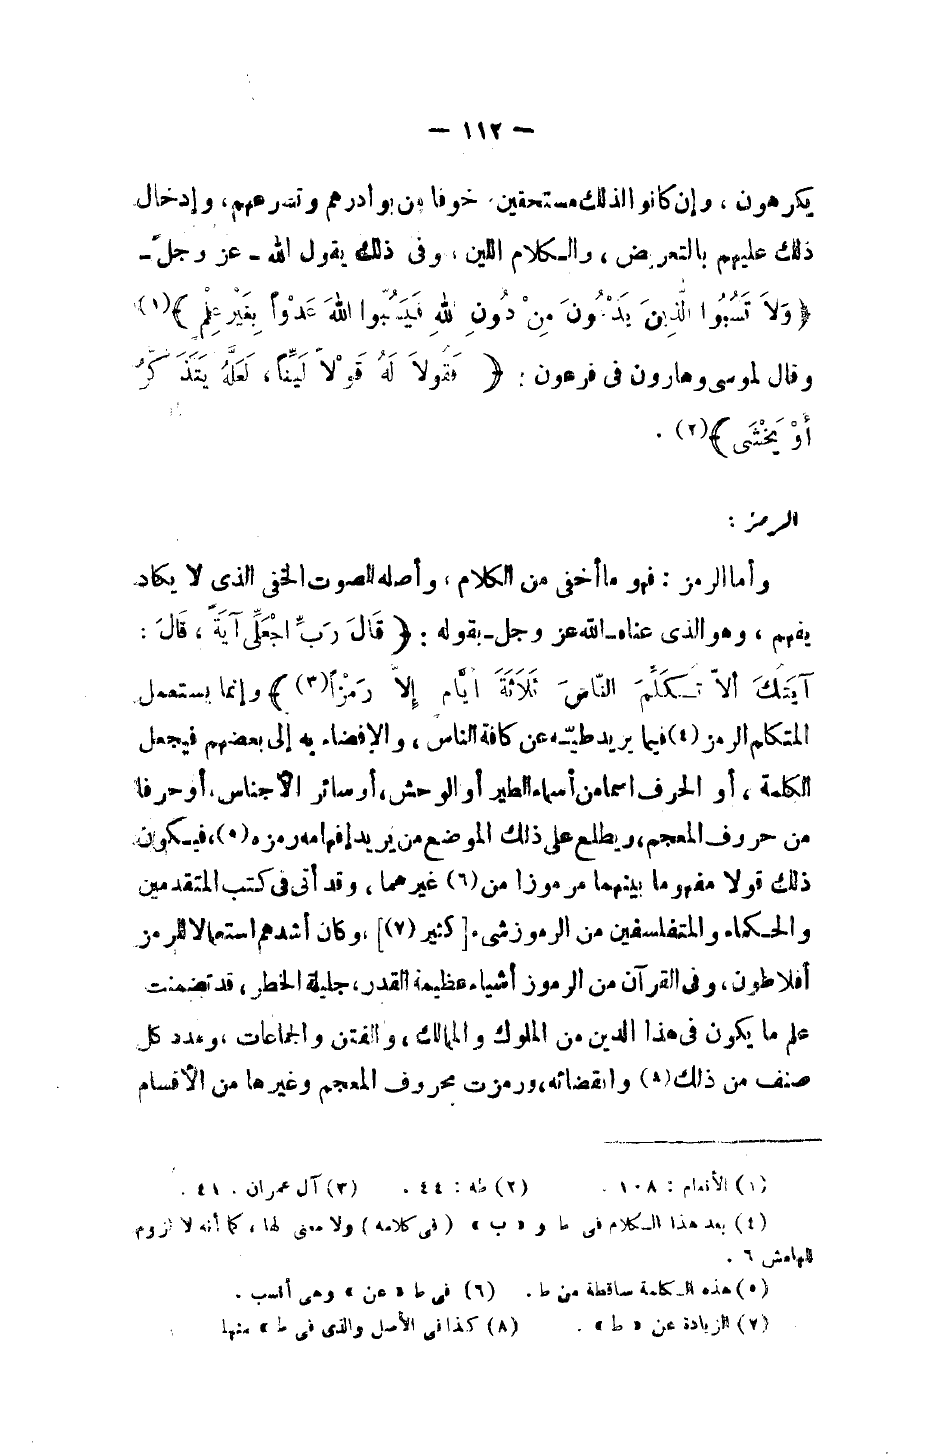 — ١١٢ —
يكرهون ، وإن كانوا لذلك مستحقين، خوفا من بوادرهم وتسرعهم، وإدخال
ذلك عليهم بالتعريض ، والكلام اللين ، وفى ذلك يقول الله ـ عز وجل ـ
﴿ وَلاَ تَسُبُّوا الَّذِينَ يَدْعُونَ مِنْ دُونِ اللهِ فَيَسُبُّوا اللهَ عَدْواً بِغَيْرِ عِلْمٍ ﴾(١)
وقال لموسى وهارون فى فرعون : ﴿ فَقُولاَ لَهُ قَوْلاً لَيِّناً ، لَعَلَّهُ يَتَذَكَّرُ
أَوْ يَخْشَى ﴾(٢) .
الرمز :
وأما الرمز : فهو ما أخفى من الكلام ، وأصله الصوت الخفى الذى لا يكاد
يفهم ، وهو الذى عناه ـ الله عز وجل ـ بقوله : ﴿ قَالَ رَبِّ اجْعَلْ لِى آيَةً ، قَالَ :
آيَتُكَ أَلاَّ تُكَلِّمَ النَّاسَ ثَلاَثَةَ أَيَّامٍ إِلاَّ رَمْزاً(٣) ﴾ وإنما يستعمل
المتكلم الرمز (٤) فيما يريد طيّه عن كافة الناس ، والإفضاء به إلى بعضهم فيجعل
الكلمة ، أو الحرف اسما من أسماء الطير أو الوحش ، أو سائر الأجناس ، أو حرفا
من حروف المعجم ، ويطلع على ذلك الموضع من يريد إفهامه رمزه (٥) ، فيكون
ذلك قولا مفهوما بينهما مرموزا من (٦) غيرهما ، وقد أتى فى كتب المتقدمين
والحكماء والمتفلسفين من الرموز شىء [ كثير (٧) ] ، وكان أشدهم استعمالا للرمز
أفلاطون ، وفى القرآن من الرموز أشياء عظيمة القدر ، جليلة الخطر ، قد تضمنت
علم ما يكون فى هذا الدين من الملوك والممالك ، والفتن والجماعات ، ومدد كل
صنف من ذلك (٨) وانقضائه ، ورمزت بحروف المعجم وغيرها من الأقسام
(١) الأنعام : ١٠٨ . (٢) طه : ٤٤ . (٣) آل عمران . ٤١ .
(٤) بعد هذا الكلام فى ط و « ب » ( فى كلامه ) ولا معنى لها ، كما أنه لا لزوم
للهامش ٦ .
(٥) هذه الكلمة ساقطة من ط . (٦) فى ط « عن » وهى أنسب .
(٧) الزيادة عن « ط » . (٨) كذا فى الأصل والذى فى ط » منها